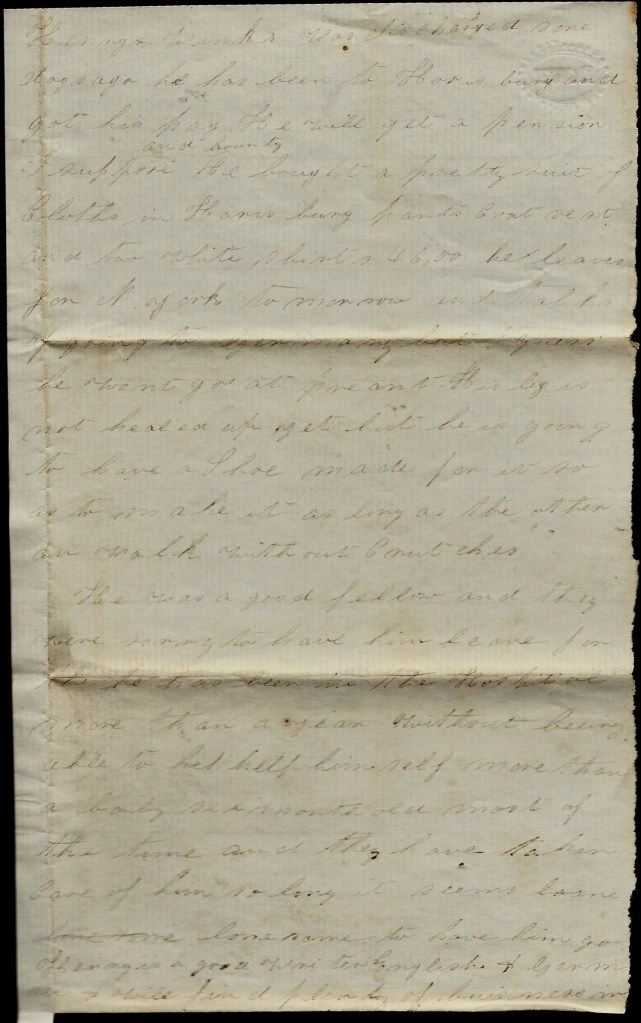 was discharged some
days ago he has been to Harisburg and
got his pay He will get a pension
and bounty
I suppose He bought a pretty suit of
Cloths in Harisburg pants Coat vest
and two white shirts 46,00 he leaves
for N york tomorrow and talks
of going to Germany but I guess
he wont go at preant His leg is
not healed up yet but he is going
to have a Shoe made for it so
as to make it as long as the other
an walk without Crutches
He was a good fellow and they
were sorry to have him leave for
he has been in the Hospital
more than a year without being
able to hel help himself more than
a baby six month old most of
the time and they have taken
Care of him so long it seems
lonesome to have him go
Henry is a good writer English & Germ
& will find plenty of business in